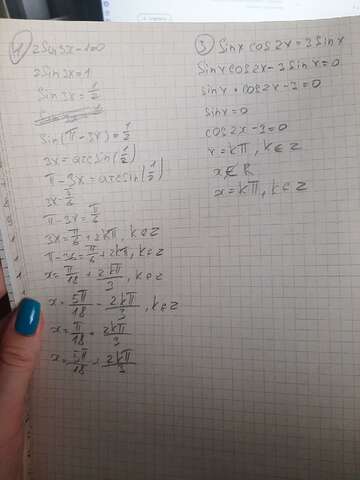 4) 2Sin3x-1=0
2Sin3x=1
Sin3x=1/2
Sin(π-3x)=1/2
3x=arcsin(1/2)
π-3x=arcsin(1/2)
3x=π/6
π-3x=π/6
3x=π/6+2kπ, k∈Z
π-3x=π/6+2kπ, k∈Z
x=π/18+2kπ/3, k∈Z
x=5π/18-2kπ/3, k∈Z
x=π/18+2kπ/3
x=5π/18+2kπ/3
3) Sinx cos2x=3Sinx
Sinxcos2x-3Sinx=0
Sinx·cos2x-3=0
Sinx=0
cos2x-3=0
x=kπ, k∈Z
x∉R
x=kπ, k∈Z